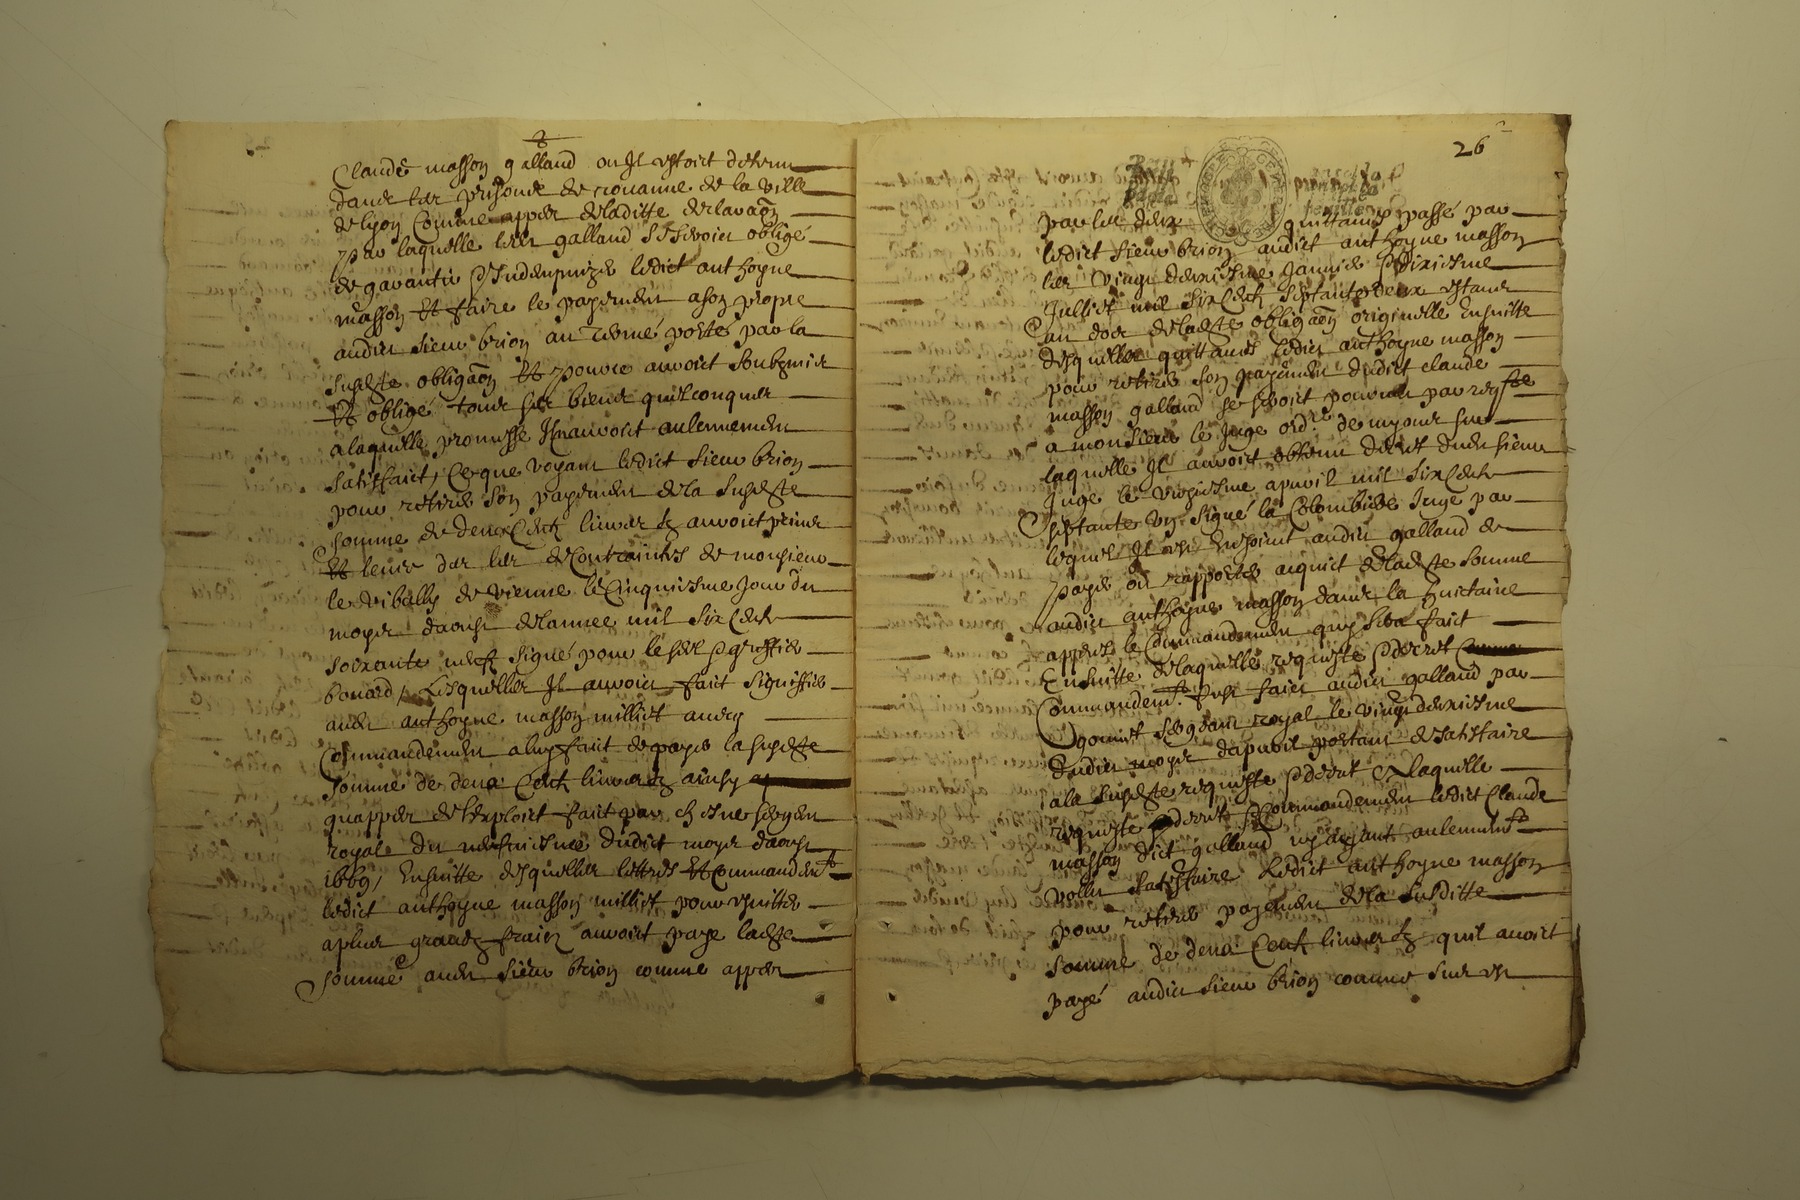 Claude masson galland ou Il estoict detenu
dans les prisons de rouanne de la ville
de lyon Comme appert de laditte declaraon
par laquelle led galland s'estoict obligé
de garantir & Indempnizer ledict anthoyne
masson Et faire le payement a son propre
audict sieur brion au terme porté par la
susdte obligaon Et pour ce auroict soubzmis
Et obligé tous ses biens quelconques
a laquelle promesse Il n'auroict aulcunement
satisfaict, Ce que voyant ledict sieur brion
pour retirer son payement de la susdte
somme de deux Centz livres tz auroict prins
Et leuvé des lres de Contrainctes de monsieur
le vibally de vienne le Cinquiesme Jour du
moys d'aoust de l'annee mil six Centz
soixante neufz signé pour le seel & greffier
bouard, Lesquelles Il auroict faict signiffier
aud anthoyne masson milliet avecq
Commandement a luy faict de payer la susdte
somme de deux Centz livres tz ainsy
qu'appert de l'exploict faict par chesne sergent
royal du neufviesme dudict moys d'aoust
1669, Ensuitte desquelles lettres Et Commandent
ledict anthoyne masson milliet pour esvitter
a plus grandz fraiz auroict payé ladte
somme aud sieur brion comme appert
26
par les deux quittances passé par
ledict sieur brion audict anthoyne masson
les vingt deuxiesme Janvier & dixiesme
Juilliet mil six Centz septante deux estant
au dos de ladte obligaon originelle Ensuitte
desquelles quittances ledict anthoyne masson
pour retirer son payement dudict claude
masson galland se seroict pourveu par reqste
a monsieur le Juge ordre de myons sur
laquelle Il auroict obtenu decret dud sieur
Juge le vingtiesme apvril mil six Centz
septante signé la Colombiere Juge par
lequel Il est Enjoinct audict galland de
payer ou rapporter acquict de ladte somme
audict anthoyne masson dans la huictaine
appres le Commandement quy sera faict
Ensuitte de laquelle requeste & decret
Commandemt fust faict audict galland par
gonnet sergent royal le vingt deuxiesme
dudict moys d'apvril portant de satisfaire
a la susdte requeste & decret a laquelle
requeste decret & Commandement ledict Claude
masson dict galland n'ayant aulcunemt
vollu satisfaire ledict anthoyne masson
pour retirer payement de la susditte
somme de deux Centz livres tz quil auoict
payé audict sieur brion comme sus est